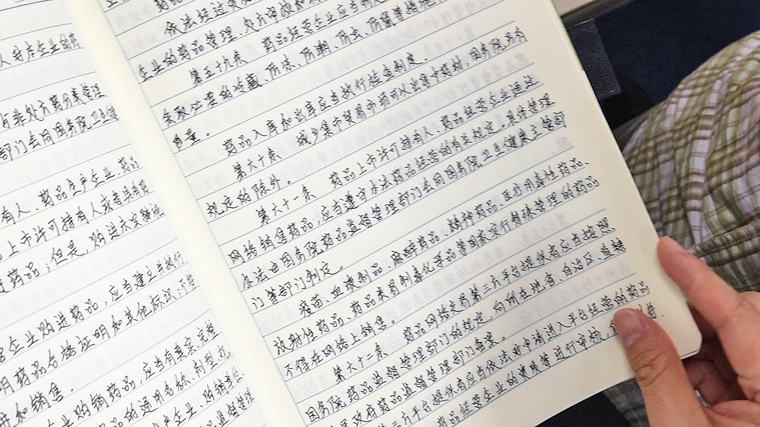 与非处方药分类管理
部门会同国务院卫生健
有人、药品生产企业、药品
上市许可持有人或者具有
药品；但是，购进未实施审
企业购进药品，应当建立并执行
明药品合格证明和其他标识；不符
和销售。
企业购销药品，应当有真实、完整
药品的通用名称、剂型、规
生产企业、购销
药品监督管理
依法经过资格
企业的药品管理、处方审核和
第五十九条 药品经营企业应当制定
采取必要的冷藏、防冻、防潮、防虫、防鼠等措施
质量。
药品入库和出库应当执行检查制度。
第六十条 城乡集市贸易市场可以出售中药材，国务院另有
规定的除外。
第六十一条 药品上市许可持有人、药品经营企业通过
网络销售药品，应当遵守本法药品经营的有关规定。具体管理
办法由国务院药品监督管理部门会同国务院卫生健康主管部
门等部门制定。
疫苗、血液制品、麻醉药品、精神药品、医疗用毒性药品、
放射性药品、药品类易制毒化学品等国家实行特殊管理的药品
不得在网络上销售。
第六十二条 药品网络交易第三方平台提供者应当按照
国务院药品监督管理部门的规定，向所在地省、自治区、直辖
人民政府药品监督管理部门备案。
三方平台提供者应当依法对申请进入平台经营的药品
药品经营企业的资质等进行审核，